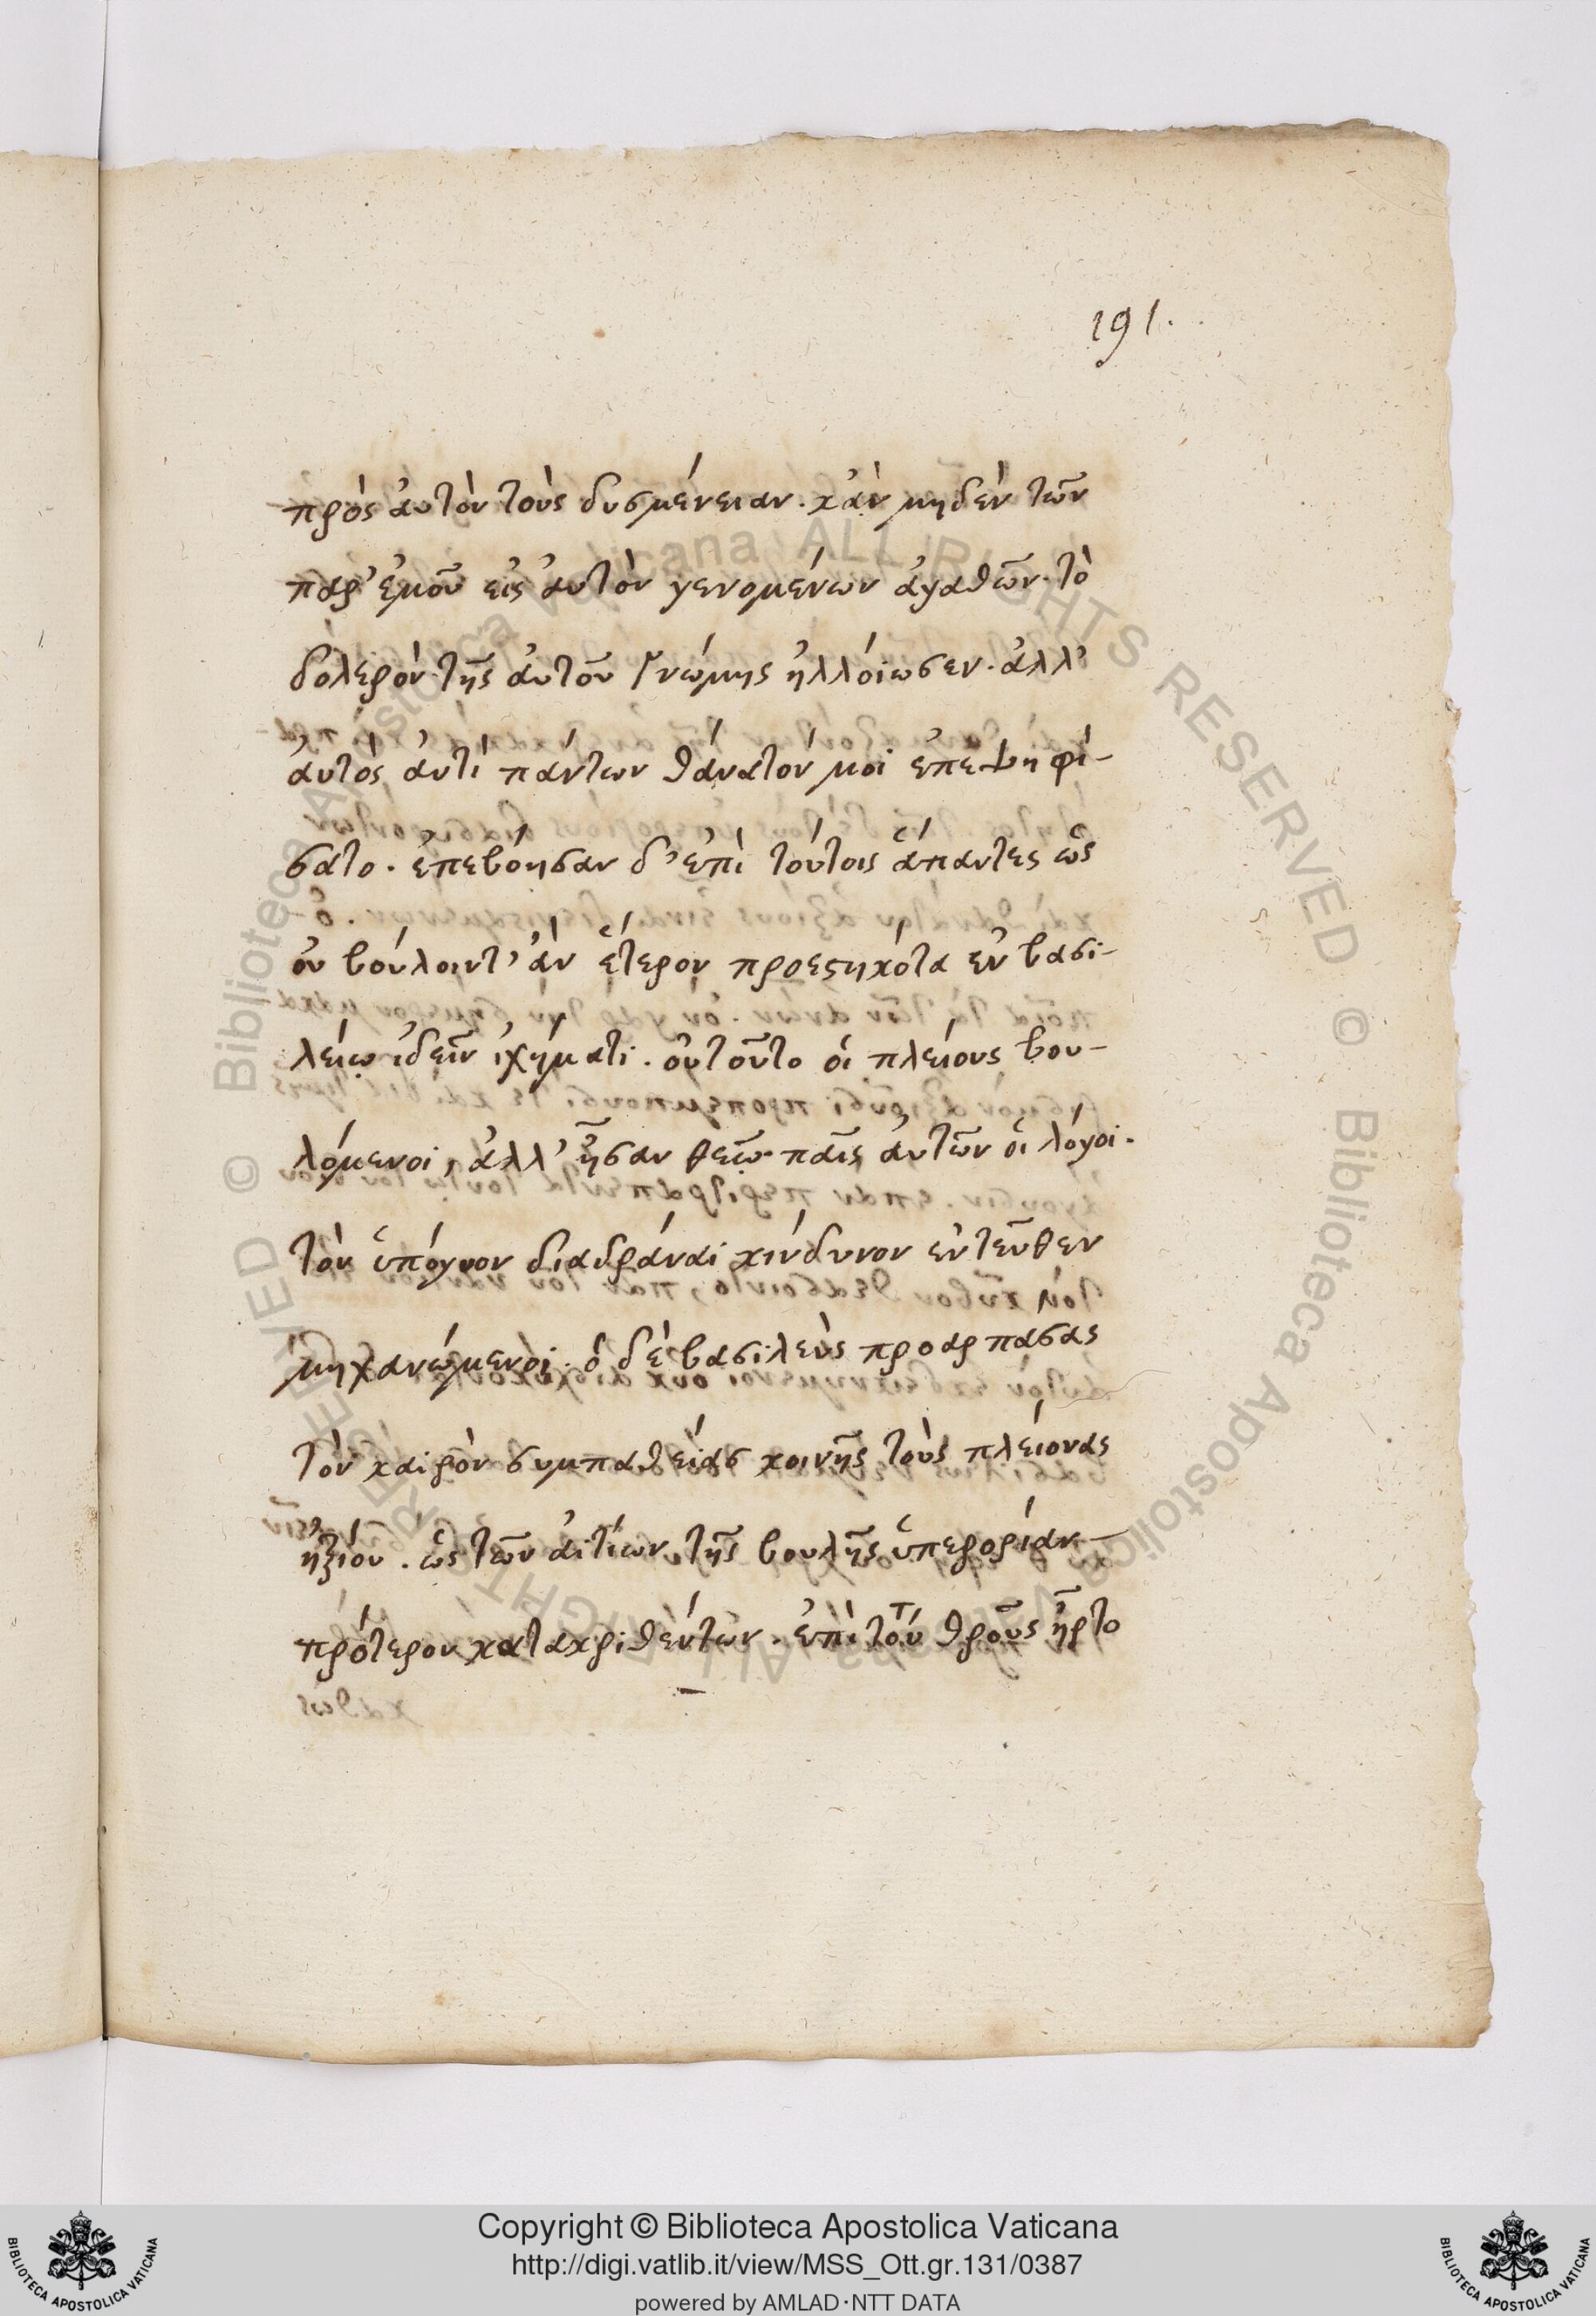 191.
πρὸς ἀυτὸν τοὺς δυσμένειαν. κἀν μηδὲν τῶν
παρ' ἐμοῦ εἰς ἀυτὸν γενομένων ἀγαθῶν. τὸ
δολερὸν τῆς ἀυτοῦ γνώμης ἠλλόιωσεν. ἀλλ'
ἀυτὸς ἀντὶ πάντων θάνατόν μοι ἐπεψηφί-
σατο. ἐπεβόησαν δ' ἐπὶ τούτοις ἅπαντες ὡς
ὀυ βούλοιντ' ἀν ἕτερον προεστηκότα ἐν βασι-
λείῳ ἰδεῖν ὀχήματι. ὀυ τοῦτο ὁι πλείους βου-
λόμενοι, ἀλλ' ἦσαν ἀυτῶν ὁι λόγοι.
τὸν ὑπόγυον διαδράναι κίνδυνον ἐντεῦθεν
μηχανώμενοι. ὁ δὲ βασιλεὺς προαρπάσας
τὸν καιρὸν συμπαθείας κοινῆς τοὺς πλείονας
ἠξίου. ὡς τῶν ἀιτίων τῆς βουλῆς ὑπερορίαν-
πρότερον κατακριθέντων. ἐπὶ τού θροῦς ἦρτο
Copyright © Biblioteca Apostolica Vaticana
http://digi.vatlib.it/view/MSS_Ott.gr.131/0387
powered by AMLAD·NTT DATA
BIBLIOTECA APOSTOLICA VATICANA
BIBLIOTECA APOSTOLICA VATICANA